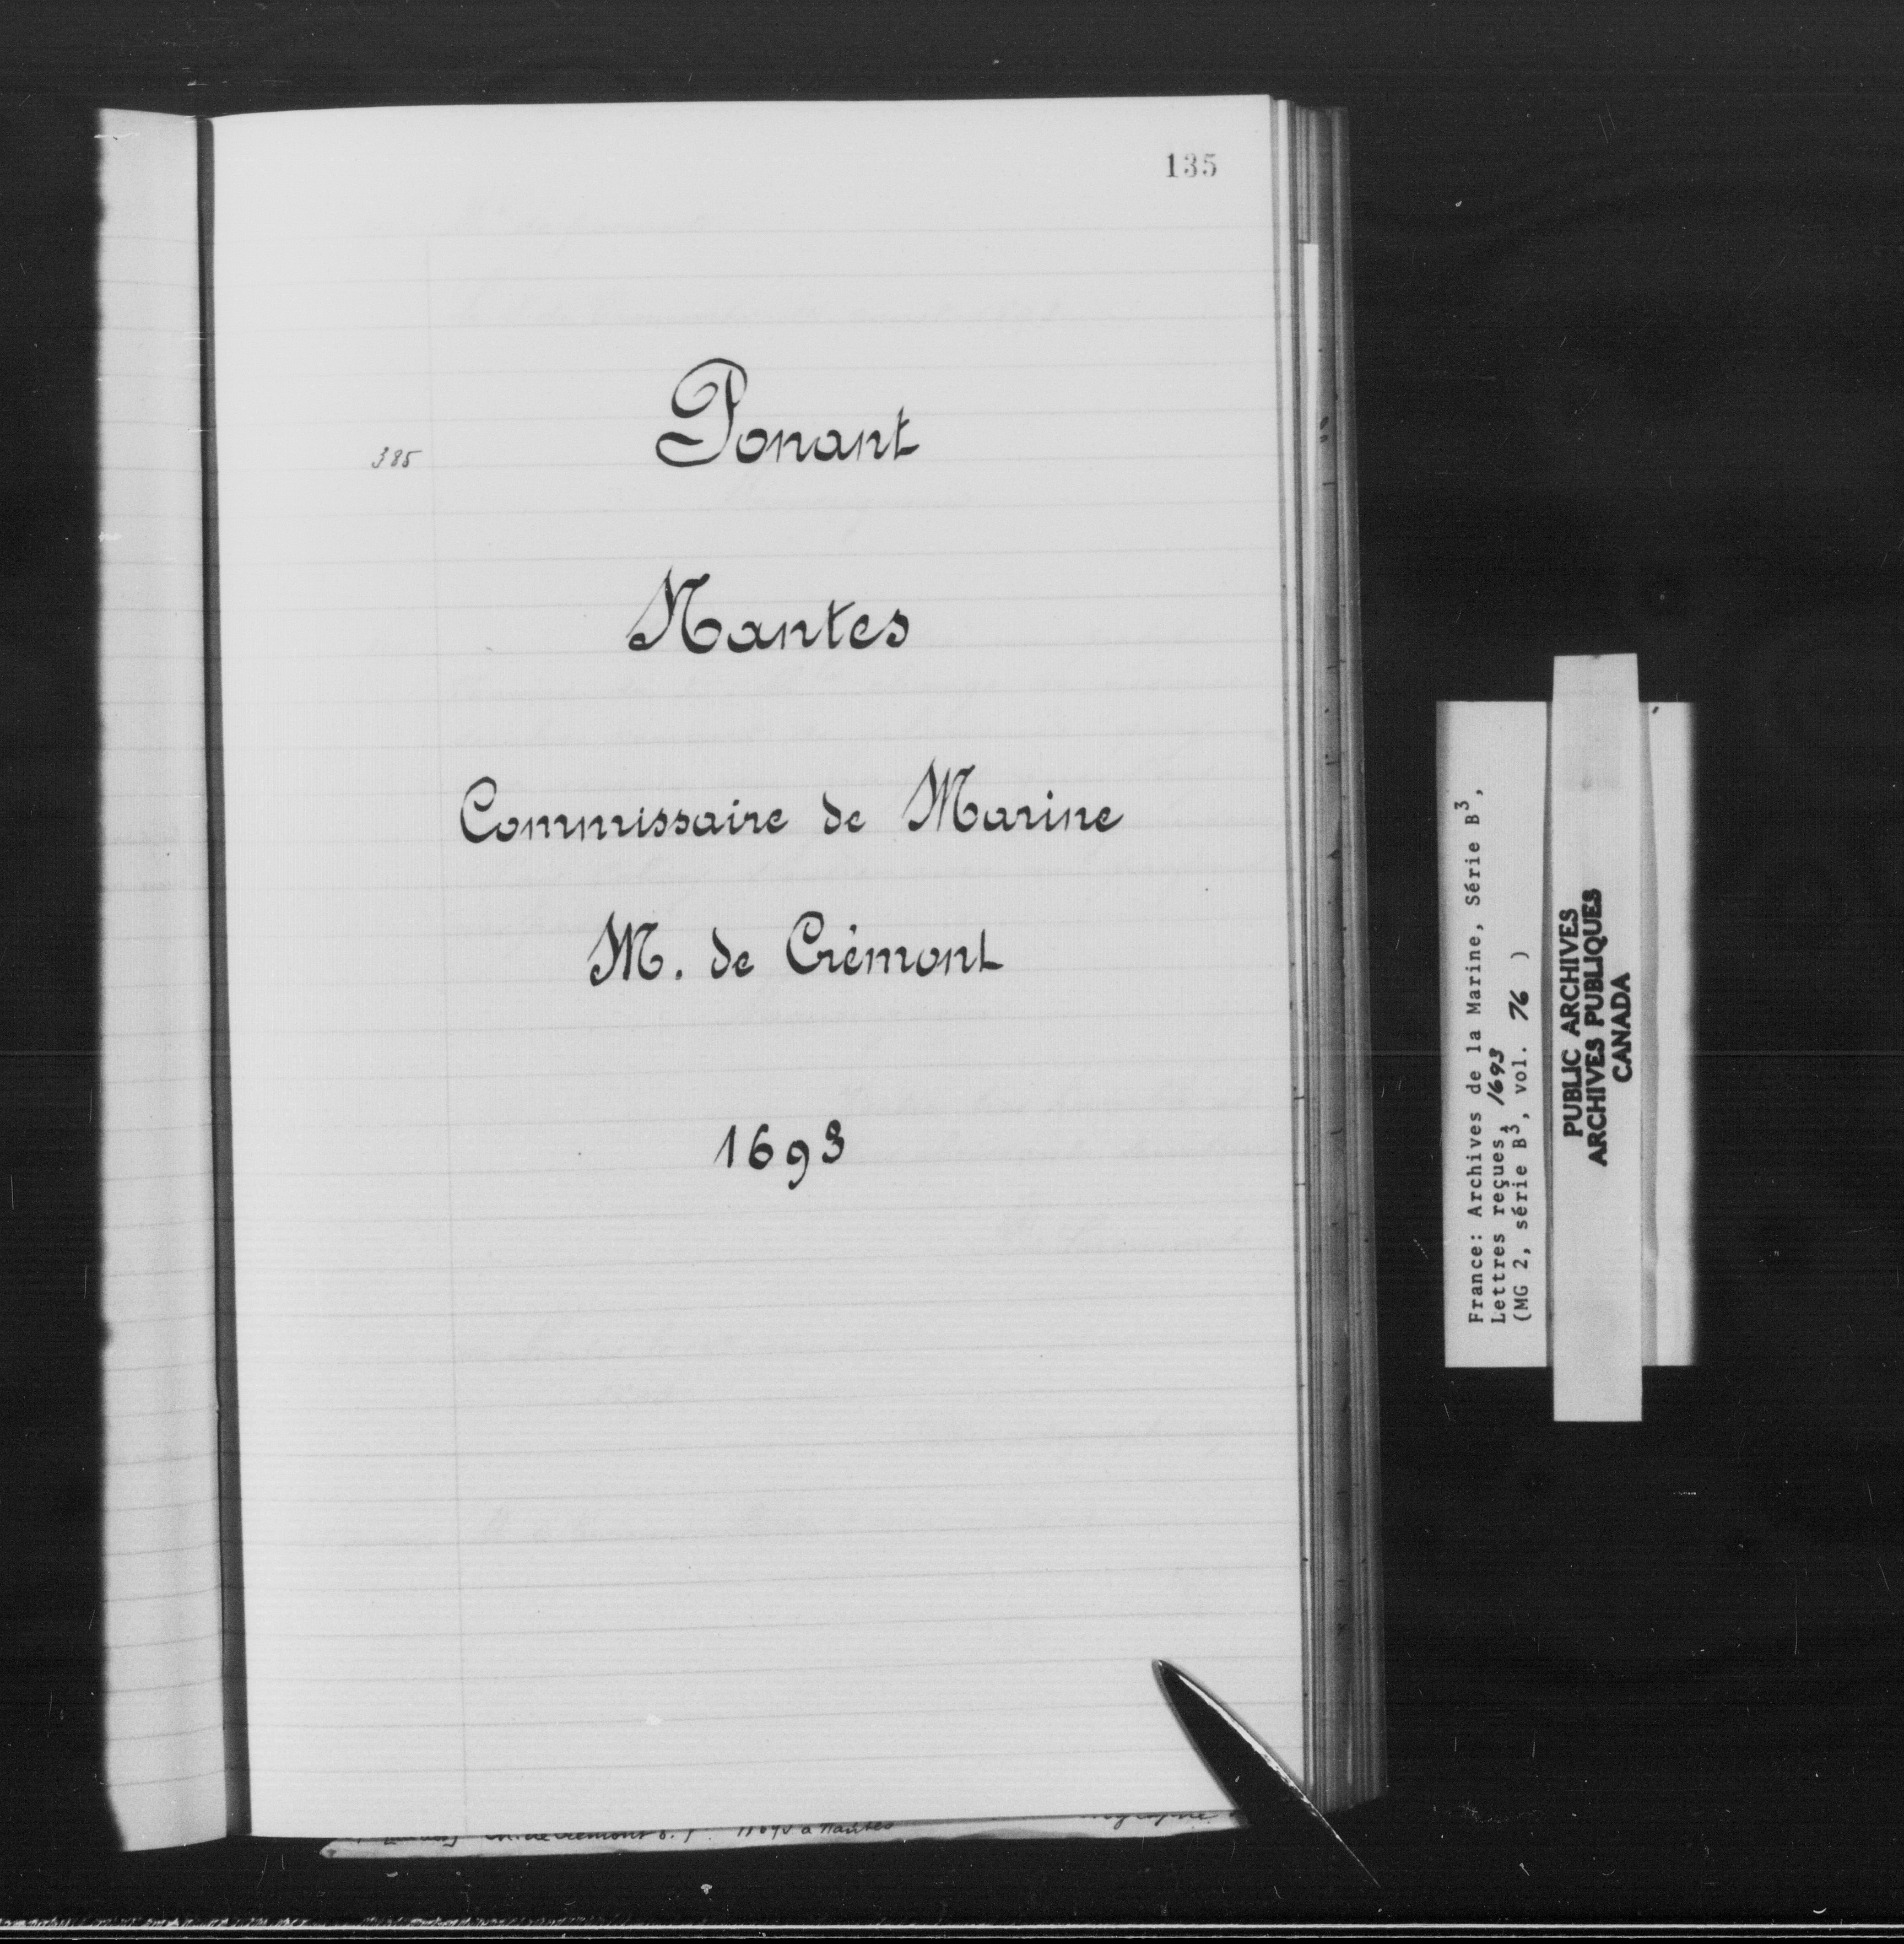 135
385
Ponant
Nantes
Commissaire de Marine
M. de Crémont
1693
France: Archives de la Marine, Série B3,
Lettres reçues, 1693
(MG 2, série B3, vol. 76 )
PUBLIC ARCHIVES
ARCHIVES PUBLIQUES
CANADA